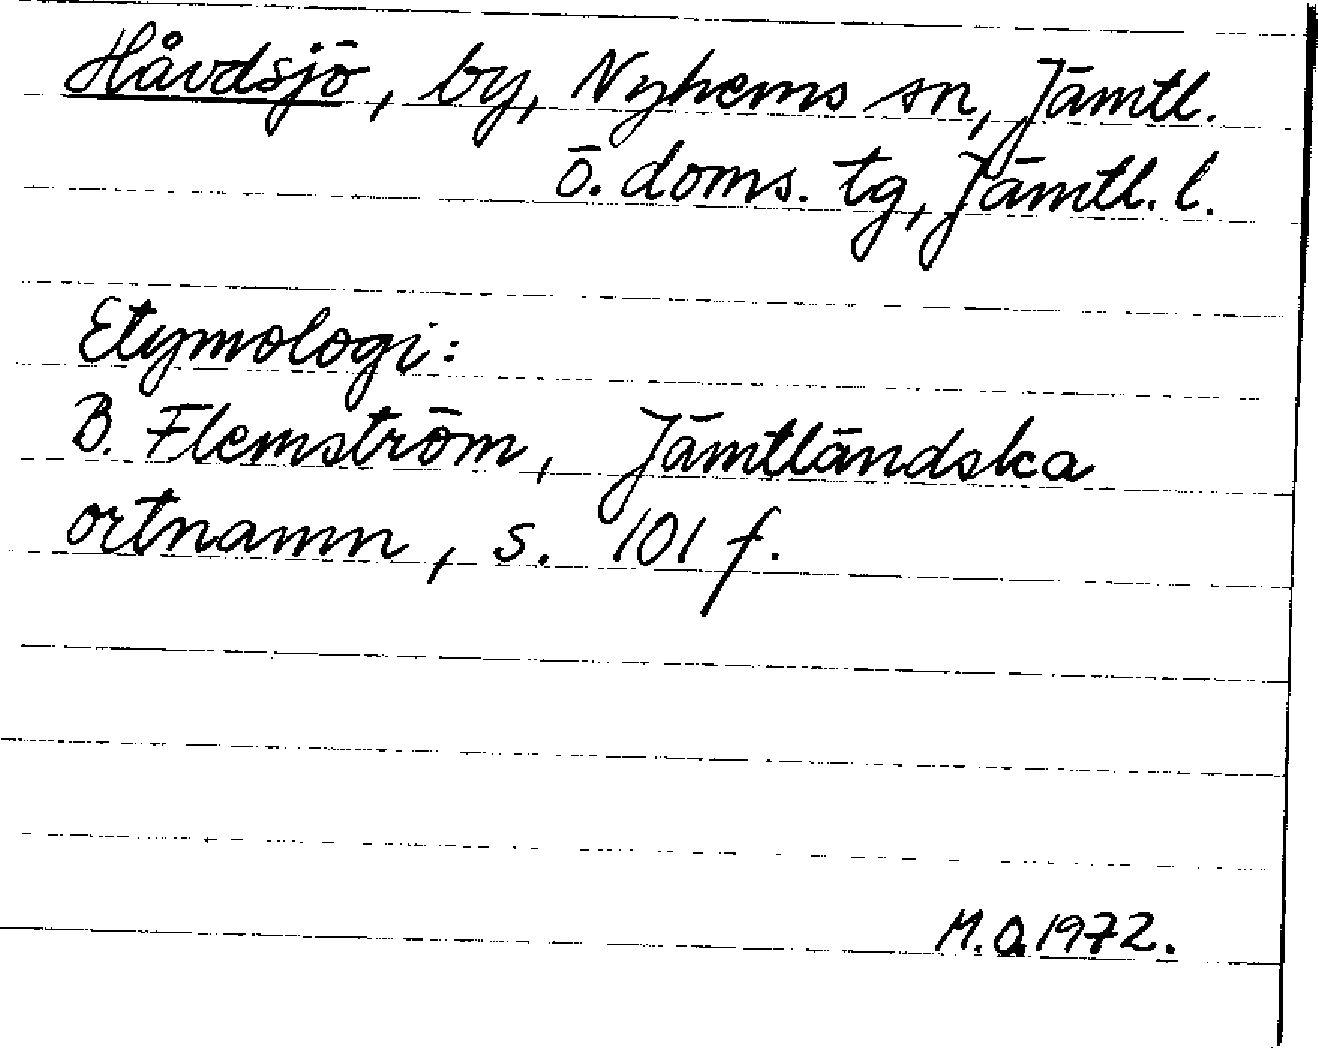 Håvdsjö, by, Nyhems sn, Jämtl.
ö. doms. tg, Jämtl. l.
Etymologi:
B. Flemström, Jämtländska
ortnamn, s. 101 f.
M.Ö.1972.